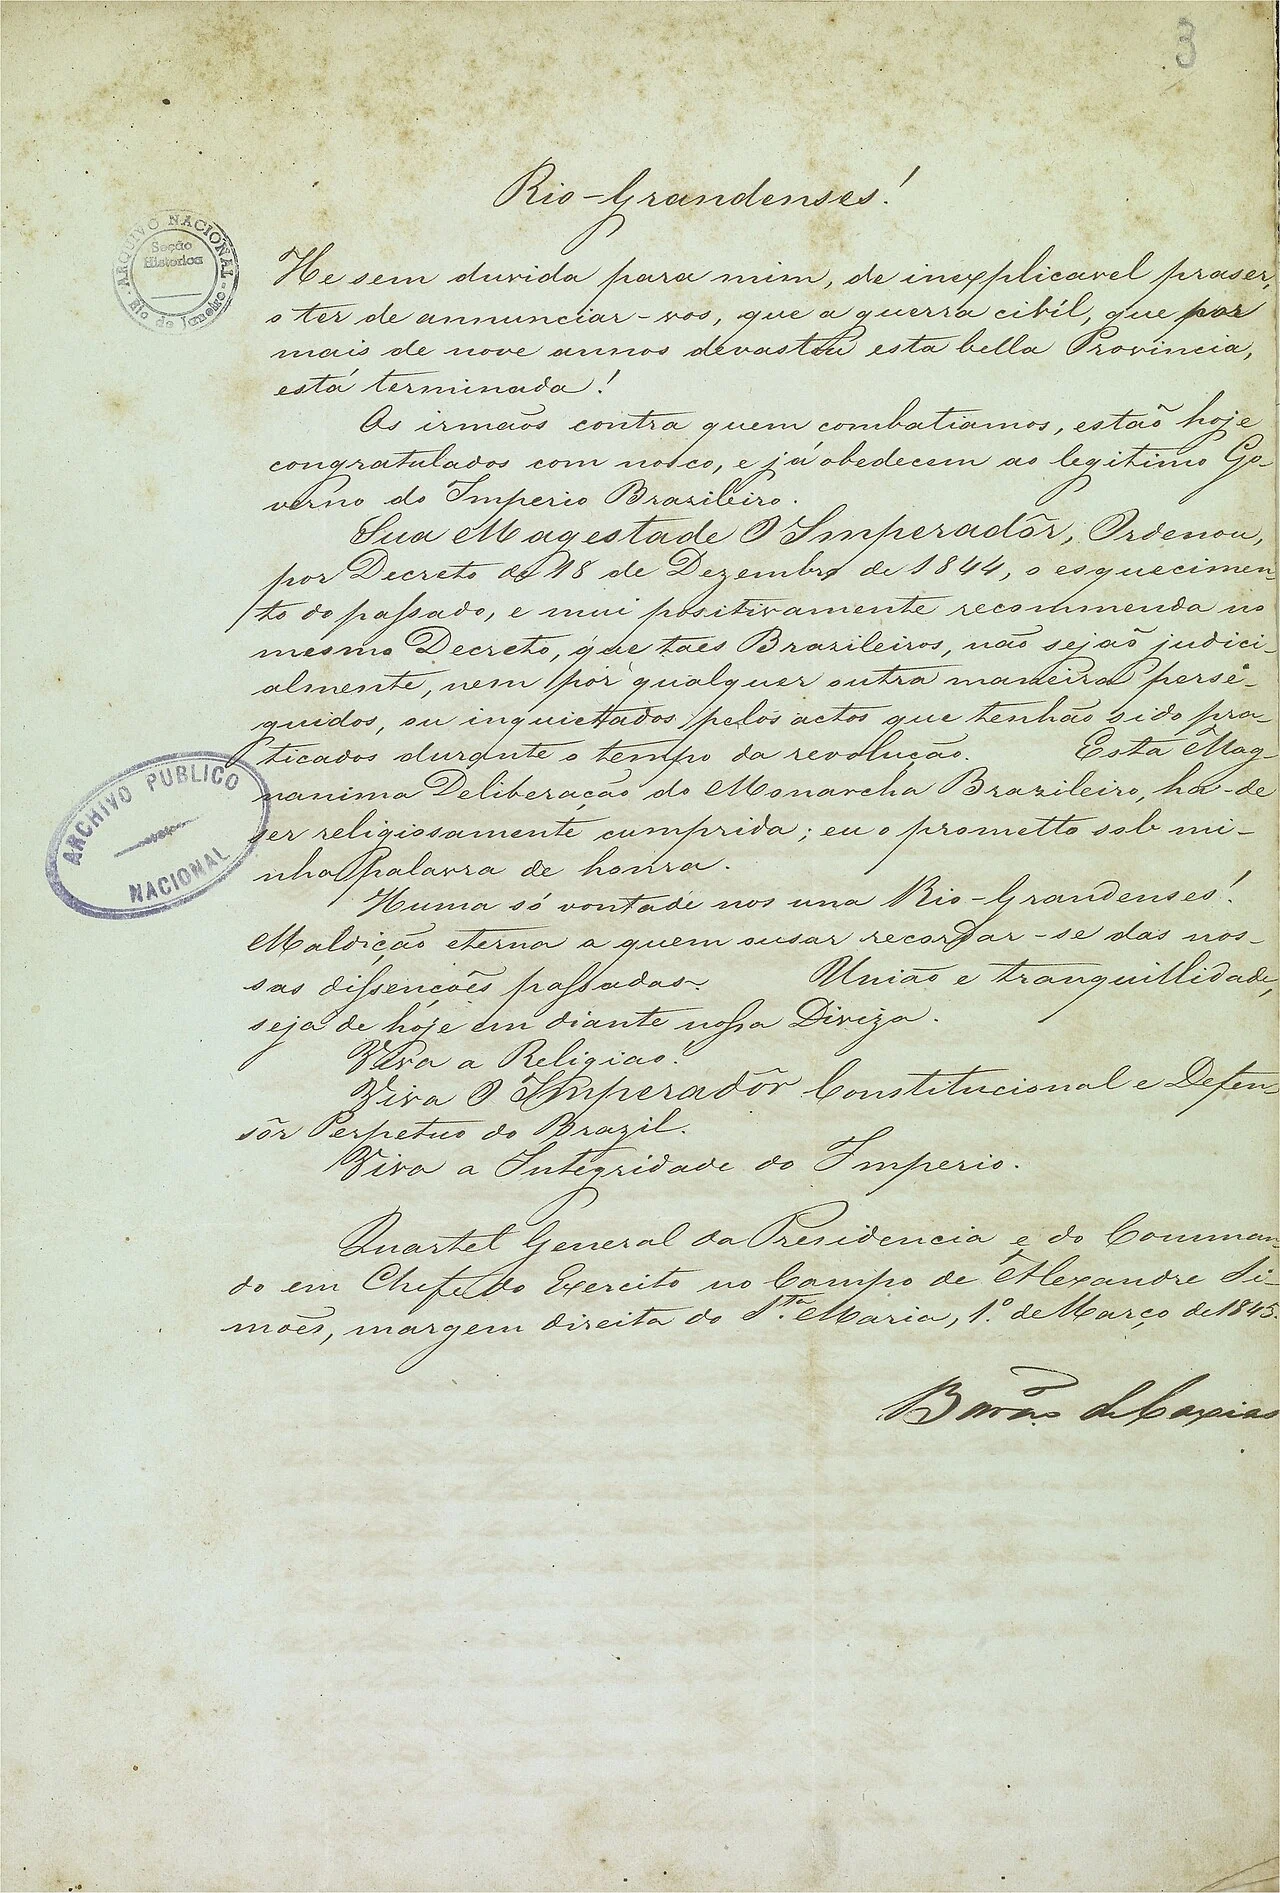 3
Rio-Grandenses!
ARQUIVO NACIONAL
Secão
Historica
Rio de Janeiro
He sem duvida para mim, de inexplicavel praser,
o ter de annunciar-vos, que a guerra civíl, que por
mais de nove annos devastou esta bella Provincia,
está terminada!
Os irmãos contra quem combatiamos, estão hoje
congratulados com nosco, e já obedecem ao legitimo Go-
verno do Imperio Brazileiro.
Sua Magestade O Imperadôr, Ordenou,
por Decreto de 18 de Dezembro de 1844, o esquecimen-
to do passado, e mui positivamente recommenda no
mesmo Decreto, que taes Brazileiros, não sejão judici-
almente, nem por qualquer outra maneira perse-
guidos, ou inquietados pelos actos que tenhão sido pra-
ticados durante o tempo da revolução. Esta Mag-
nanima Deliberação do Monarcha Brazileiro, ha-de
ser religiosamente cumprida; eu o prometto sob mi-
nha palavra de honra.
ARCHIVO PUBLICO
NACIONAL
Huma só vontade nos una Rio-Grandenses!
Maldição eterna a quem ousar recordar-se das nos-
sas dissenções passadas. União e tranquillidade,
seja de hoje em diante nossa Diviza.
Viva a Religião!
Viva O Imperadôr Constitucional e Defen-
sôr Perpetuo do Brazil.
Viva a Integridade do Imperio.
Quartel General da Presidencia e do Comman-
do em Chefe do Exercito no Campo de Alexandre Si-
mões, margem direita do Sta. Maria, 1º. de Março de 1845.
Barão de Caxias